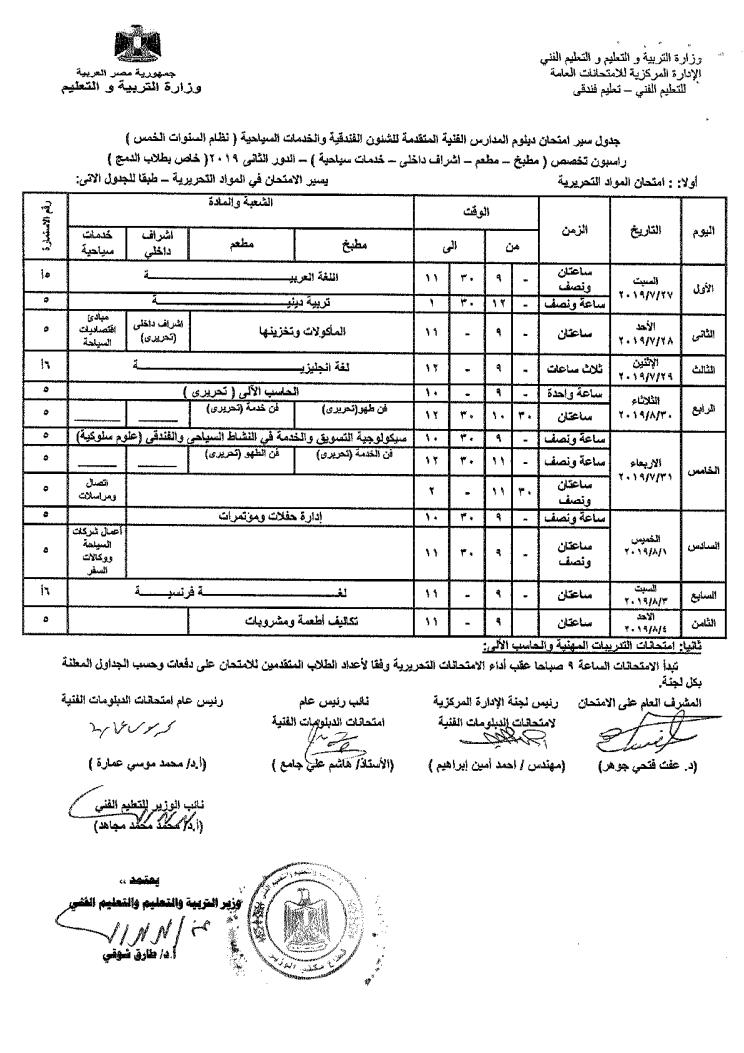 وزارة التربية و التعليم و التعليم الفني
الإدارة المركزية للامتحانات العامة
للتعليم الفني – تعليم فندقى
جمهورية مصر العربية
وزارة التربية و التعليم
جدول سير امتحان دبلوم المدارس الفنية المتقدمة للشئون الفندقية والخدمات السياحية ( نظام السنوات الخمس )
راسبون تخصص ( مطبخ – مطعم – اشراف داخلى – خدمات سياحية ) – الدور الثانى ٢٠١٩ ( خاص بطلاب الدمج )
أولا: : امتحان المواد التحريرية يسير الامتحان في المواد التحريرية – طبقا للجدول الاتى:
اليوم التاريخ الزمن الوقت الشعبة والمادة رقم الاستمارة
من الى مطبخ مطعم اشراف داخلي خدمات سياحية
الأول السبت ٢٠١٩/٧/٢٧ ساعتان ونصف - ٩ ٣٠ ١١ اللغة العربية ١٥
ساعة ونصف - ١٢ ٣٠ ١ تربية دينية ٥
الثانى الأحد ٢٠١٩/٧/٢٨ ساعتان - ٩ - ١١ المأكولات وتخزينها اشراف داخلى (تحريرى) مبادئ اقتصاديات السياحة ٥
الثالث الإثنين ٢٠١٩/٧/٢٩ ثلاث ساعات - ٩ - ١٢ لغة انجليزية ١٦
الرابع الثلاثاء ٢٠١٩/٨/٣٠ ساعة واحدة - ٩ - ١٠ الحاسب الألى ( تحريرى ) ٥
ساعتان ٣٠ ١٠ ٣٠ ١٢ فن طهو(تحريرى) فن خدمة (تحريرى) ٥
الخامس الاربعاء ٢٠١٩/٧/٣١ ساعة ونصف - ٩ ٣٠ ١٠ سيكولوجية التسويق والخدمة في النشاط السياحى والفندقى (علوم سلوكية) ٥
ساعة ونصف - ١١ ٣٠ ١٢ فن الخدمة (تحريرى) فن الطهو (تحريرى) ٥
ساعتان ونصف ٣٠ ١١ - ٢ اتصال ومراسلات ٥
السادس الخميس ٢٠١٩/٨/١ ساعة ونصف - ٩ ٣٠ ١٠ إدارة حفلات ومؤتمرات ٥
ساعتان ونصف - ٩ ٣٠ ١١ أعمال شركات السياحة ووكالات السفر ٥
السابع السبت ٢٠١٩/٨/٣ ساعتان - ٩ - ١١ لغة فرنسية ١٦
الثامن الاحد ٢٠١٩/٨/٤ ساعتان - ٩ - ١١ تكاليف أطعمة ومشروبات ٥
ثانيا: امتحانات التدريبات المهنية والحاسب الألى:
تبدأ الامتحانات الساعة ٩ صباحا عقب أداء الامتحانات التحريرية وفقا لأعداد الطلاب المتقدمين للامتحان على دفعات وحسب الجداول المعلنة
بكل لجنة.
المشرف العام على الامتحان رئيس لجنة الإدارة المركزية نائب رئيس عام رئيس عام امتحانات الدبلومات الفنية
لامتحانات الدبلومات الفنية امتحانات الدبلومات الفنية
(د. عفت فتحي جوهر) (مهندس / احمد أمين إبراهيم ) (الأستاذ/ هاشم علي جامع ) (أ.د/ محمد موسي عمارة )
نائب الوزير للتعليم الفني
(أ.د/ محمد محمد مجاهد)
يعتمد ،،
وزير التربية والتعليم والتعليم الفني
أ.د/ طارق شوقي
قطاع مكتب الوزير